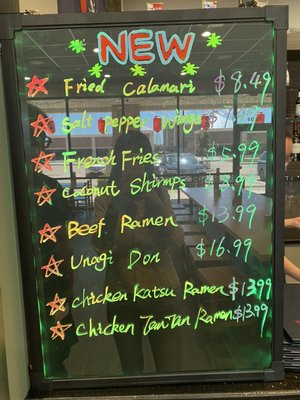 NEW
Fried Calamari $8.49
Salt pepper Wings
French Fries $5.99
Coconut Shrimps
Beef Ramen $13.99
Unagi Don $16.99
Chicken Katsu Ramen $13.99
Chicken TanTan Ramen $13.99